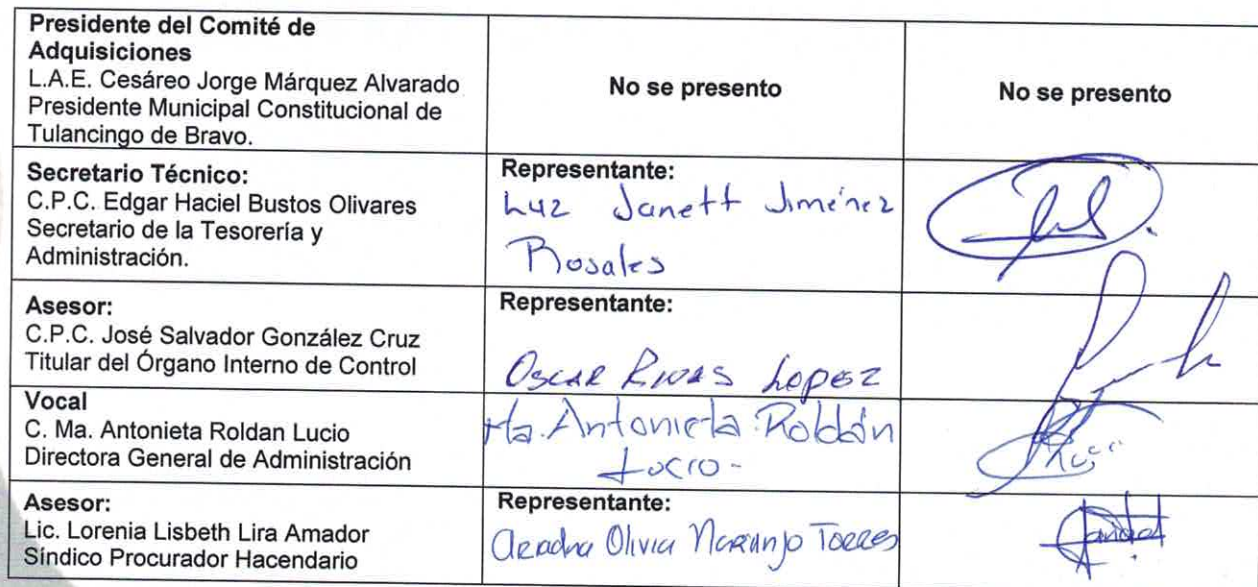 Presidente del Comité de
Adquisiciones
L.A.E. Cesáreo Jorge Márquez Alvarado
Presidente Municipal Constitucional de
Tulancingo de Bravo.
No se presento
No se presento
Secretario Técnico:
C.P.C. Edgar Haciel Bustos Olivares
Secretario de la Tesorería y
Administración.
Representante:
Luz Janett Jiménez
Rosales
Asesor:
C.P.C. José Salvador González Cruz
Titular del Órgano Interno de Control
Representante:
OSCAR RIVAS LOPEZ
Vocal
C. Ma. Antonieta Roldan Lucio
Directora General de Administración
Ma. Antonieta Roldán
Lucio-
Asesor:
Lic. Lorenia Lisbeth Lira Amador
Síndico Procurador Hacendario
Representante:
Ariadna Olivia Naranjo Torres